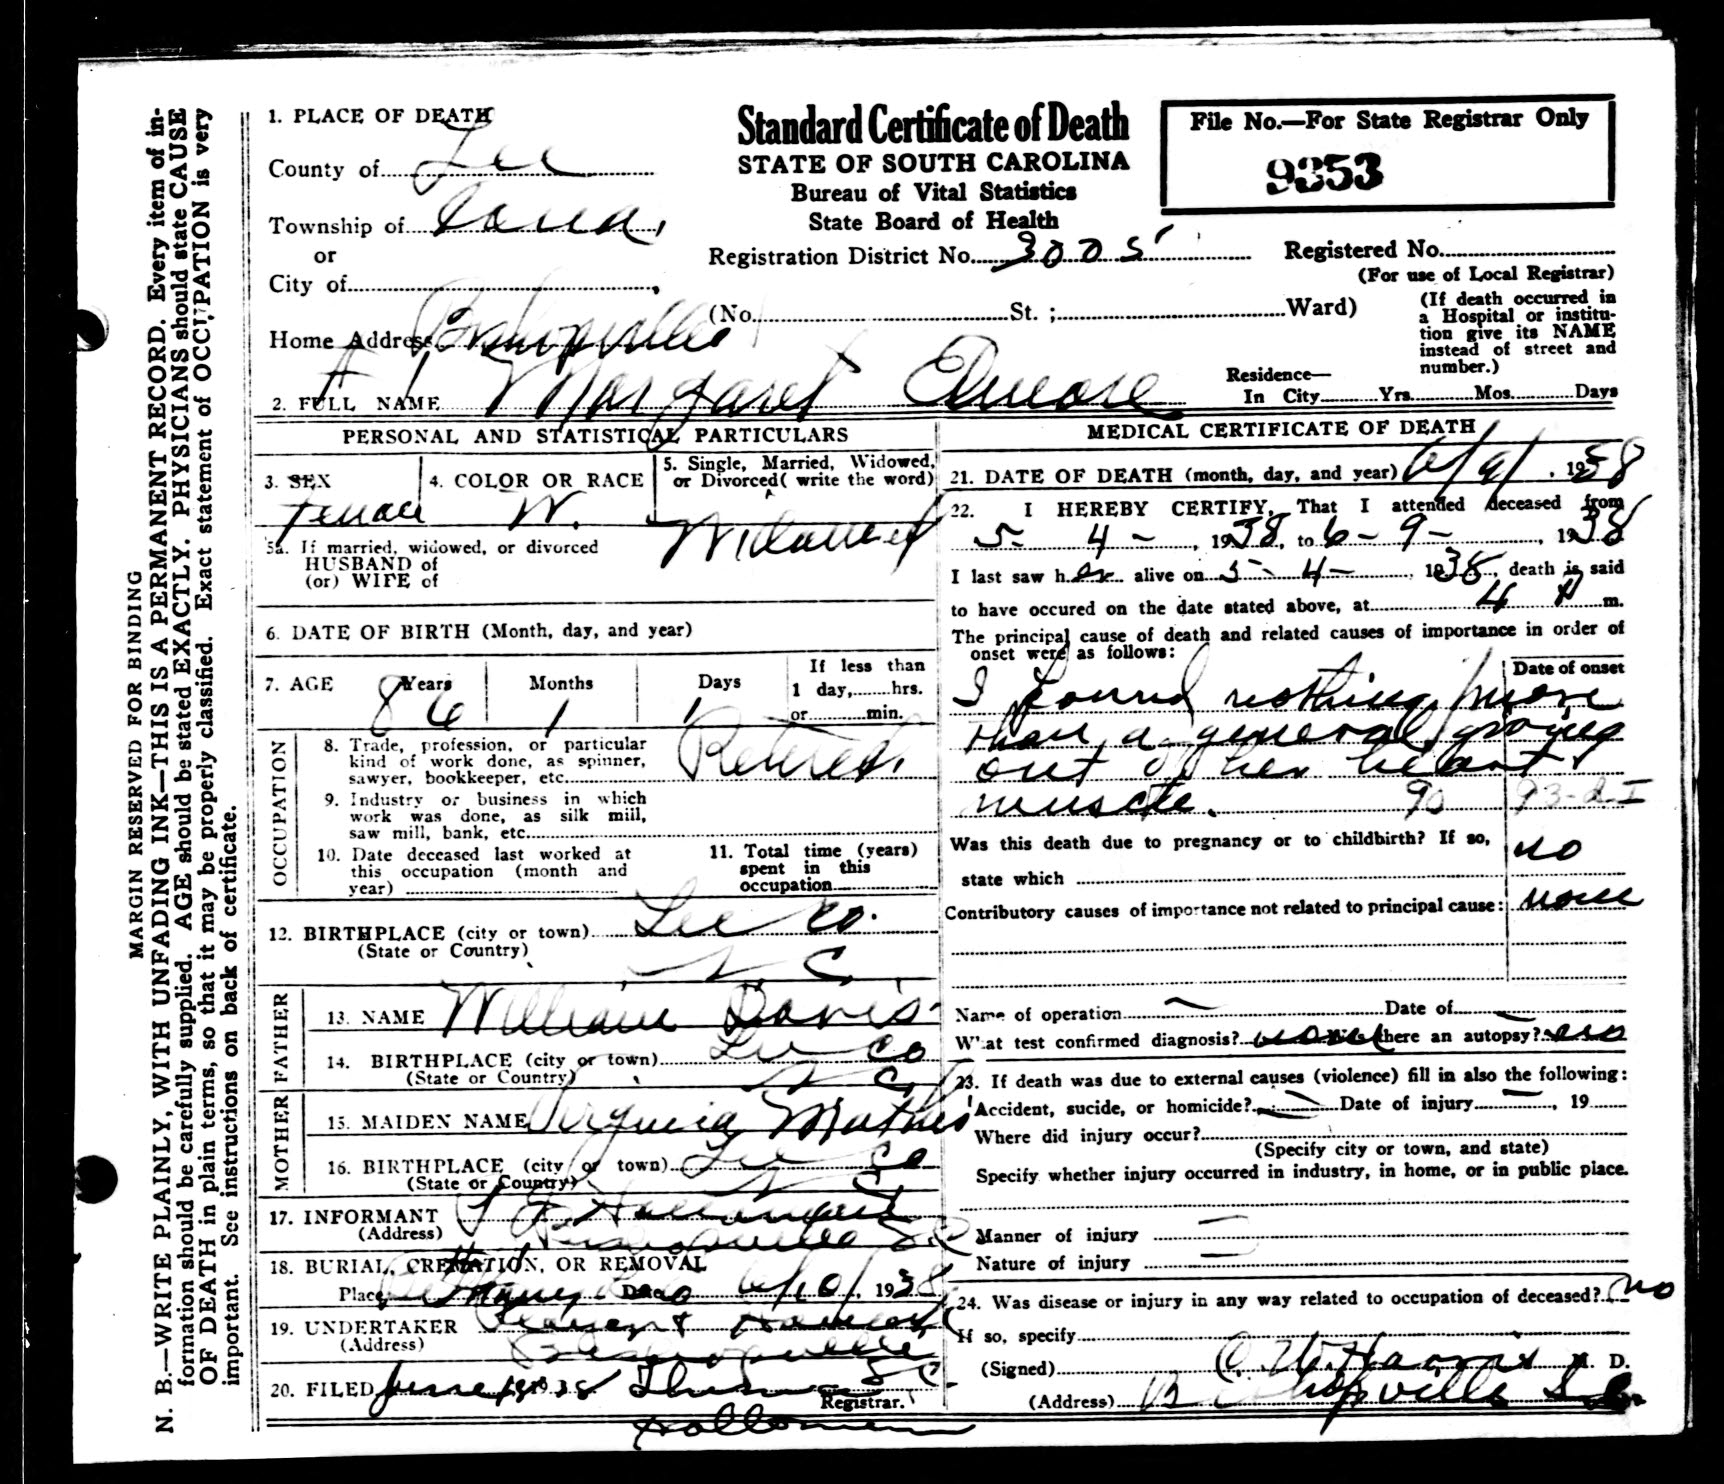 MARGIN RESERVED FOR BINDING
N. B.—WRITE PLAINLY, WITH UNFADING INK—THIS IS A PERMANENT RECORD. Every item of in-
formation should be carefully supplied. AGE should be stated EXACTLY. PHYSICIANS should state CAUSE
OF DEATH in plain terms, so that it may be properly classified. Exact statement of OCCUPATION is very
important. See instructions on back of certificate.
1. PLACE OF DEATH
County of Lee
Township of
or
City of
Home Address Bishopville
Standard Certificate of Death
STATE OF SOUTH CAROLINA
Bureau of Vital Statistics
State Board of Health
Registration District No. 3005
(No. St.; Ward)
File No.—For State Registrar Only
9353
Registered No.
(For use of Local Registrar)
(If death occurred in
a Hospital or institu-
tion give its NAME
instead of street and
number.)
2. FULL NAME Margaret
Residence—
In City Yrs. Mos. Days
PERSONAL AND STATISTICAL PARTICULARS
3. SEX
Female
4. COLOR OR RACE
W.
5. Single, Married, Widowed,
or Divorced (write the word)
Widowed
5a. If married, widowed, or divorced
HUSBAND of
(or) WIFE of
6. DATE OF BIRTH (Month, day, and year)
7. AGE 86 Years 1 Months 1 Days
If less than
1 day, hrs.
or min.
OCCUPATION
8. Trade, profession, or particular
kind of work done, as spinner,
sawyer, bookkeeper, etc. Retired
9. Industry or business in which
work was done, as silk mill,
saw mill, bank, etc.
10. Date deceased last worked at
this occupation (month and
year)
11. Total time (years)
spent in this
occupation
12. BIRTHPLACE (city or town) Lee Co.
(State or Country) S C
FATHER
13. NAME William Davis
14. BIRTHPLACE (city or town) Lee Co
(State or Country) S C
MOTHER
15. MAIDEN NAME Virginia Mathis
16. BIRTHPLACE (city or town) Lee Co
(State or Country) S C
17. INFORMANT
(Address) Bishopville S C
18. BURIAL, CREMATION, OR REMOVAL
Place Date 6/10/, 1938
19. UNDERTAKER
(Address) Bishopville S C
20. FILED June 1938
Registrar.
MEDICAL CERTIFICATE OF DEATH
21. DATE OF DEATH (month, day, and year) 6/9/, 1938
22. I HEREBY CERTIFY, That I attended deceased from
5-4-, 1938, to 6-9-, 1938
I last saw her alive on 5-4-, 1938, death is said
to have occured on the date stated above, at 4 A m.
The principal cause of death and related causes of importance in order of
onset were as follows:
Date of onset
I found nothing more
than a general giving
out of her heart
muscle. 90
Was this death due to pregnancy or to childbirth? If so, no
state which
Contributory causes of importance not related to principal cause: none
Name of operation — Date of —
What test confirmed diagnosis? Was there an autopsy? no
23. If death was due to external causes (violence) fill in also the following:
Accident, sucide, or homicide? — Date of injury —, 19
Where did injury occur?
(Specify city or town, and state)
Specify whether injury occurred in industry, in home, or in public place.
Manner of injury —
Nature of injury —
24. Was disease or injury in any way related to occupation of deceased? no
If so, specify
(Signed) M. D.
(Address) Bishopville S C